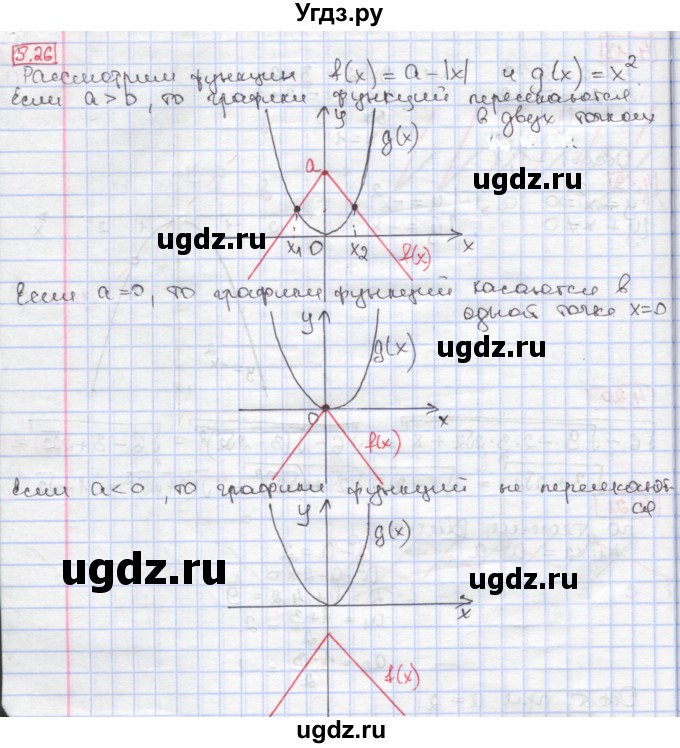 Угдз.ру
5.26
Рассмотрим функции f(x) = a - |x| и g(x) = x²
Если a > 0, то графики функций пересекаются
в двух точках
y
g(x)
a
ugdz.ru
ugdz.ru
x₁ 0 x₂ x
f(x)
Если a = 0, то графики функций касаются в
одной точке x = 0
y
g(x)
ugdz.ru
0 x
f(x)
Если a < 0, то графики функций не пересекают-
ся
y
g(x)
ugdz.ru
ugdz.ru
x
f(x)
ugdz.ru
ugdz.ru